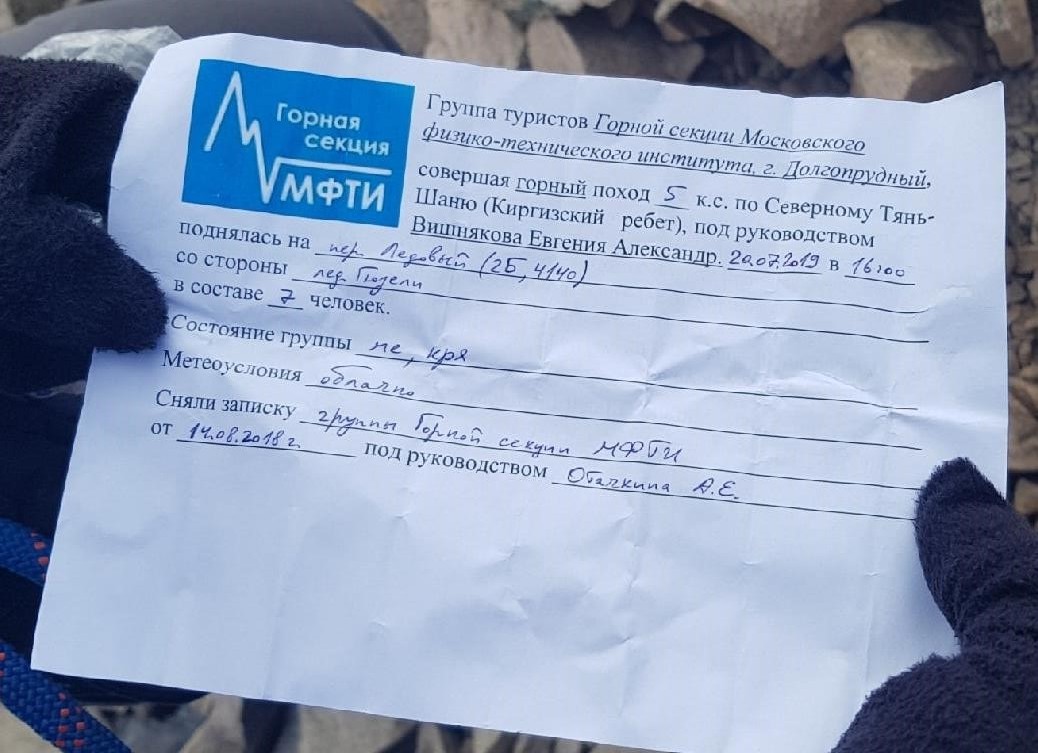 Горная
секция
МФТИ
Группа туристов Горной секции Московского
физико-технического института, г. Долгопрудный,
совершая горный поход 5 к.с. по Северному Тянь-
Шаню (Киргизский ребет), под руководством
Вишнякова Евгения Александр. 20.07.2019 в 16:00
поднялась на пер. Ледовый (2Б, 4140)
со стороны лед. Тюзели
в составе 7 человек.
Состояние группы не, кря
Метеоусловия облачно
Сняли записку группы Горной секции МФТИ
от 14.08.2018 г. под руководством А.Е.